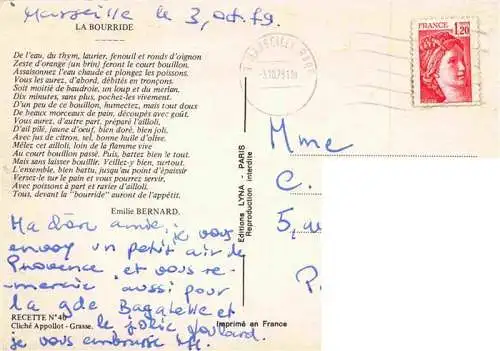 Marseille le 3, oct. 79.
LA BOURRIDE
De l'eau, du thym, laurier, fenouil et ronds d'oignon
Zeste d'orange (un brin) feront le court bouillon.
Assaisonnez l'eau chaude et plongez les poissons.
Vous les aurez, d'abord, débités en tronçons.
Soit moitié de baudroie, un loup et du merlan,
Dix minutes, sans plus, pochez-les vivement.
D'un peu de ce bouillon, humectez, mais tout doux
De beaux morceaux de pain, découpés avec goût.
Vous aurez, d'autre part, préparé l'ailloli,
D'ail pilé, jaune d'oeuf, bien doré, bien joli.
Avec jus de citron, sel, bonne huile d'olive.
Mêlez cet ailloli, loin de la flamme vive
Au court bouillon passé. Puis, battez bien le tout.
Mais sans laisser bouillir. Veillez-y bien, surtout.
L'ensemble, bien battu, jusqu'au point d'épaissir
Versez-le sur le pain et vous pourrez servir,
Avec poissons à part et ravier d'ailloli.
Tous, devant la "bourride" auront de l'appétit.
Emilie BERNARD.
je vous
envoy un petit air de
Provence et vous re-
mercie aussi pour
la gde Bagatelle et
le jolie foulard.
je vous embrasse
RECETTE N°40
Cliché Appollot - Grasse.
Imprimé en France
Editions LYNA - PARIS
Reproduction interdite
FRANCE
1,20
Mme
C.
5,
P.